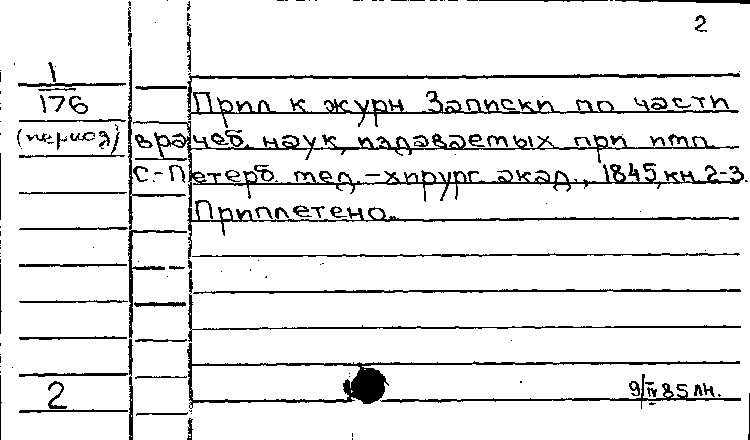 2
1
176 Прил к журн Записки по части
(период) врачеб. наук, издаваемых при имп
С.-Петерб. мед.-хирург акад., 1845, кн. 2-3.
Приплетено.
2
9/IV 85 лн.